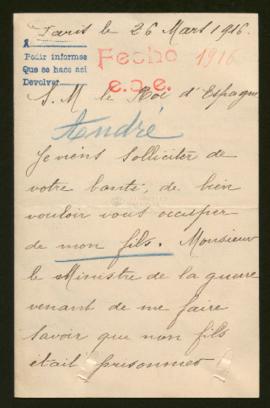 Paris le 26 Mars 1916.
A
Pedir informes
Que se hace así
Devolver
Fecho 1916
e.o.e.
S. M le Roi d'Espagne
André
Je viens solliciter de
votre bonté, de bien
vouloir vous occuper
de mon fils. Monsieur
le Ministre de la guerre
venant de me faire
savoir que mon fils
était prisonnier